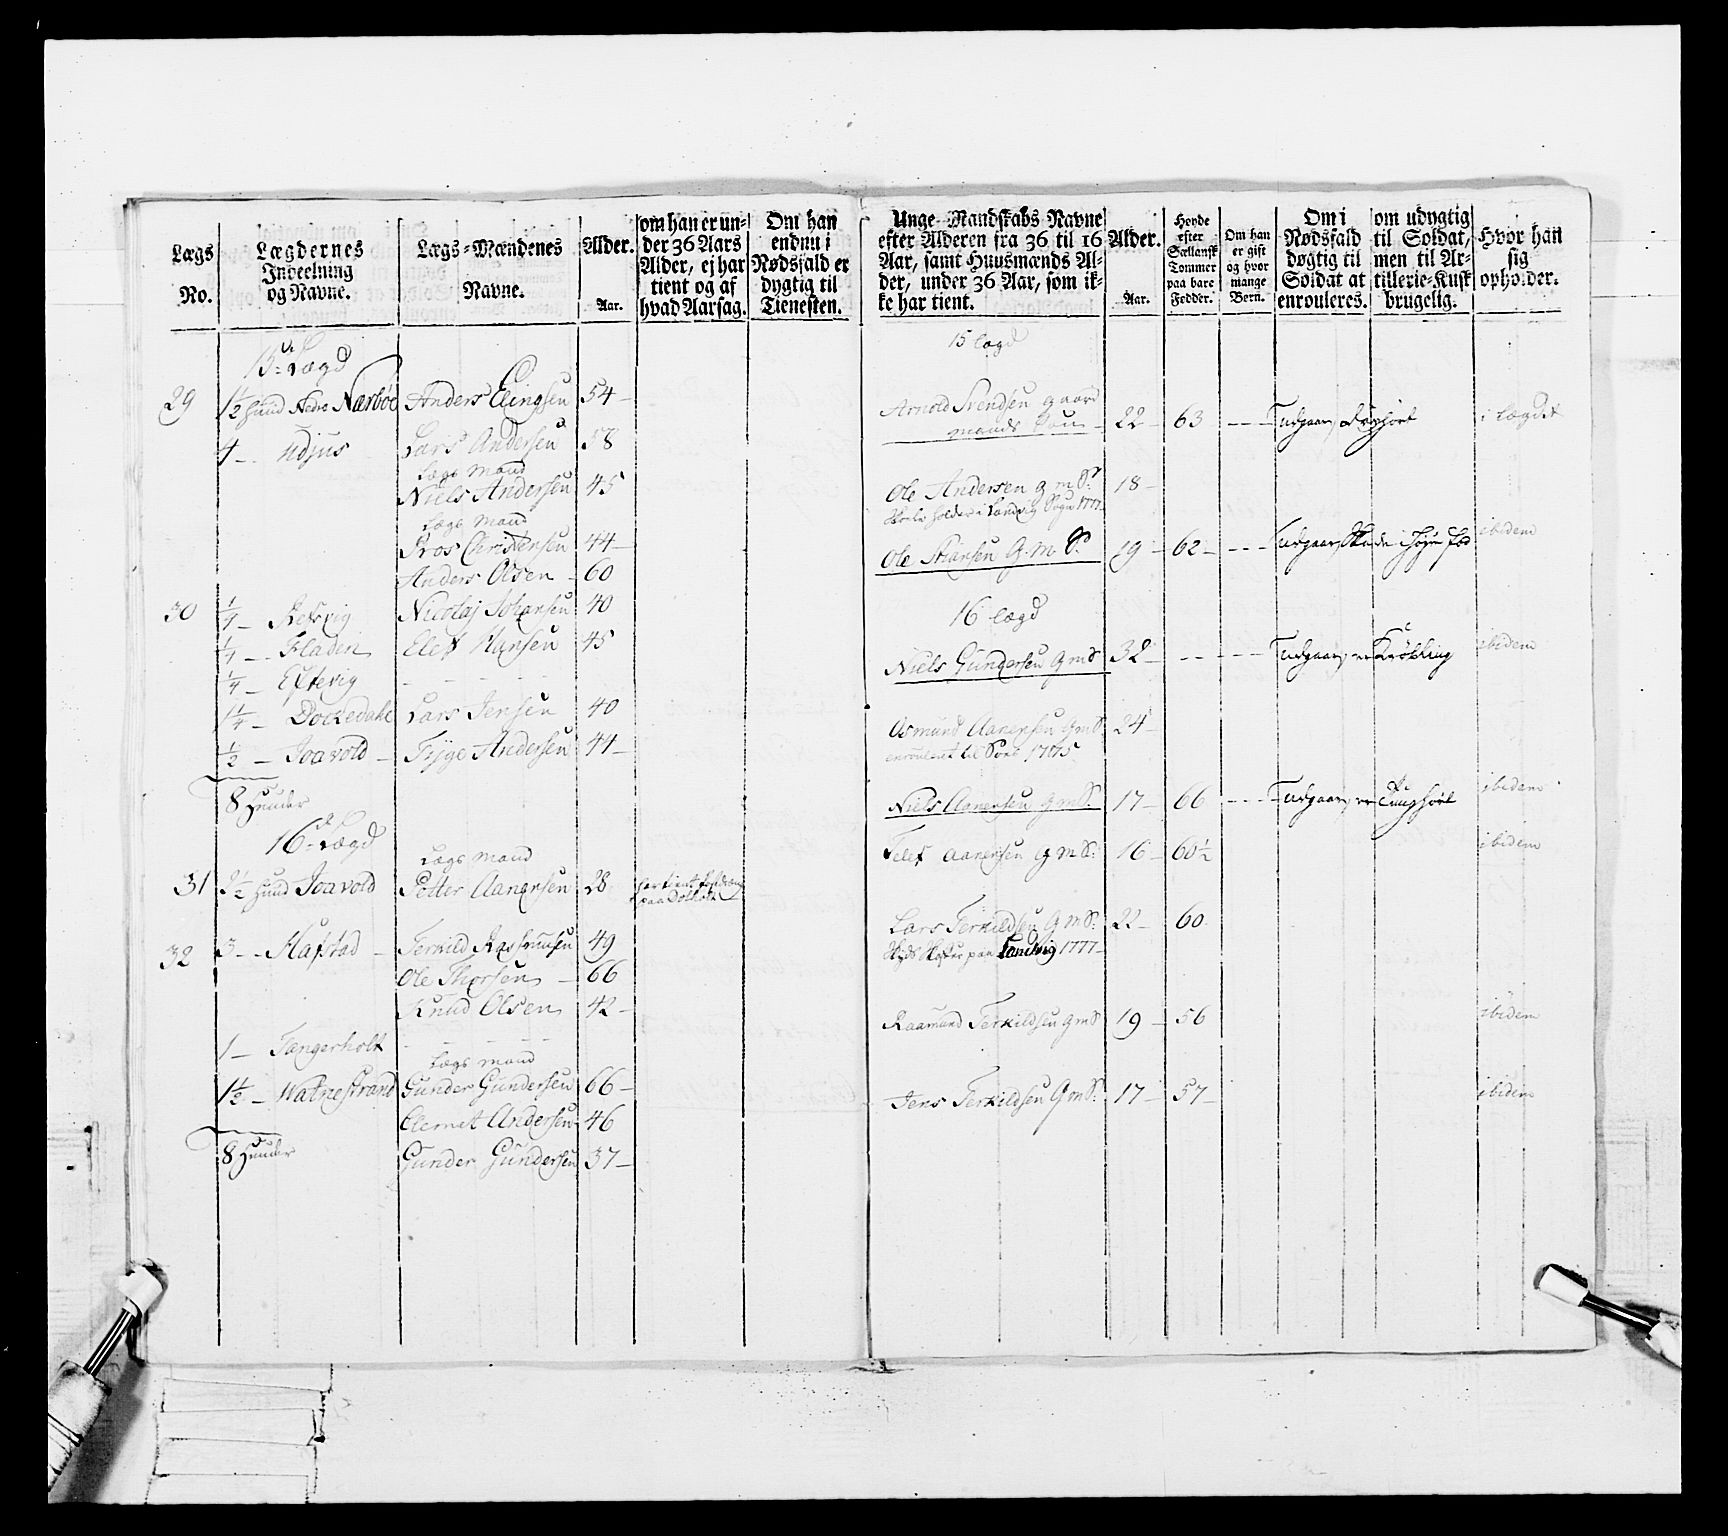 Lægs No.
Lægdernes Indeelning og Navne.
Lægs-Mændenes Navne.
Alder. Aar.
om han er un-
der 36 Aars
Alder, ej har
tient og af
hvad Aarsag.
Om han
endnu i
Nødsfald er
dygtig til
Tienesten.
Unge Mandskabs Navne
efter Alderen fra 36 til 16
Aar, samt Huusmænds Al-
der, under 36 Aar, som ik-
ke har tient.
Alder. Aar.
Høyde
efter
Siællansk
Tommer
paa bare
Fødder.
Om han
er gift
og hvor
mange
Børn.
Om i
Nødsfald
døgtig til
Soldat at
enrouleres.
om udygtig
til Soldat,
men til Ar-
tillerie-Kusk
brugelig.
Hvor han
sig
opholder.
15de Lægd
29 1½ Huud Nedre Nærbøe Anders Elingsen 54
4 Udjus Lars Andersen 58
Lægs Mand
Niels Andersen 45
Lægs Mand
Aros Christensen 44
Anders Olsen 60
30 ¼ Refsvig Nicolaj Johansen 40
¼ Fladen Elef Hansen 45
¼ Eftevig - - - -
1¼ Dockedahl Lars Jensen 40
½ Joavold Tryge Andersen 44
8 Huuder
16de Lægd
Lægs Mand
31 2½ Huud Joavold Petter Aanensen 28
32 3 Hafstad Terkild Rasmusen 49
Ole Thorsen 66
Knud Olsen 42
1 Tangerholt - - - -
Lægs Mand
1½ Watnestrand Gunder Gundersen 66
Clemet Andersen 46
8 Huuder Gunder Gundersen 37
15 Lægd
Arnold Svendsen gaard
mands Søn 22 63 - - - i Lægdet
Ole Andersen G M S: 18
holder i Landvig Sogn 1777
Ole G. M. S: 19 62 - - - ibidem
16 Lægd
Niels Gundersen G m S 32 - - - ibidem
Osmund Aanensen G m S 24
enrouleret til Søes 1775
Niels Aanensen G m S: 17 66 - - - ibidem
Telef Aanensen G M S: 16 60½ ibidem
Lars Terkildsen G M S: 22 60
paa Landvig 1777
Raamund Terkildsen G m S 19 56 ibidem
Jens Terkildsen G m S: 17 57 ibidem